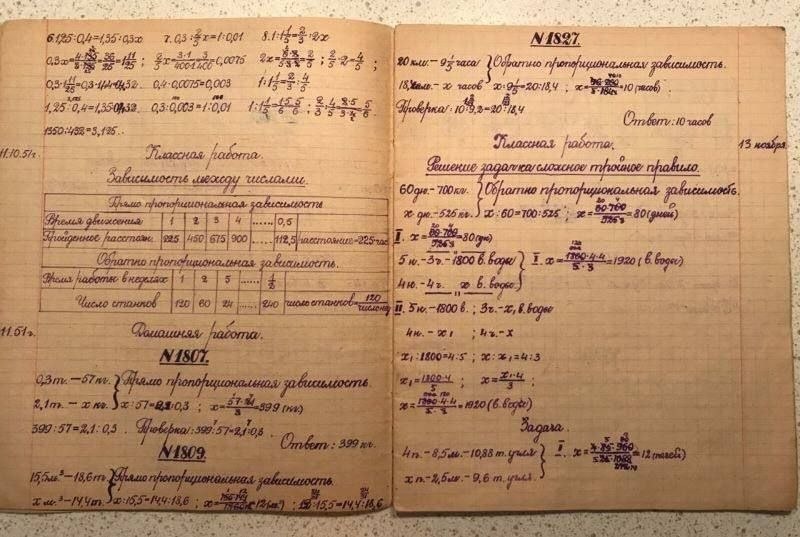 6. 1,25:0,4=1,35:0,3x 7. 0,3:2/5x=1:0,01 8. 1:1 1/5=2/3:2x
0,4·0,0075=0,003
0,3:0,003=1:0,01
1350:432=3,125.
11.10.51г. Классная работа.
Зависимость между числами.
Прямо пропорциональная зависимость
Время движения 1 2 3 4 ...... 0,5
Пройденное расстоян. 225 450 675 900 ...... 112,5 расстояние=225·час
Обратно пропорциональная зависимость.
Время работы в неделях 1 2 5 ...... 1/2
Число станков 120 60 24 ...... 240 число станков=120/число нед
11.51г. Домашняя работа.
№1807.
0,3т. – 57 кг. } Прямо пропорциональная зависимость.
2,1т. – x кг. } x:57=2,1:0,3 ; x=57·21/3=399 (кг.)
399:57=2,1:0,3. Проверка: 399:57=2,1:0,3
Ответ: 399 кг.
№1809.
15,5м.³–18,6т. } Прямо пропорциональная зависимость.
x м.³–14,4т. } x:15,5=14,4:18,6 ; =12(м.³) 12:15,5=14,4:18,6
№1827.
20 км. – 9 1/5 часа } Обратно пропорциональная зависимость.
18,4км. – x часов } x:9 1/5=20:18,4 ; =10 (часов)
Проверка: 10:9,2=20:18,4
Ответ: 10 часов
Классная работа. 13 ноября
Решение задач на сложное тройное правило.
60 дн.–700 кг. } Обратно пропорциональная зависимость.
x дн.–525 кг. } x:60=700:525 ; x=60·700/525=80 (дней)
I. x=60·700/525=80 (дн)
5 н.–3ч.–1800 в. воды } I. x=1800·4·4/5·3=1920 (в. воды)
4 н.–4ч. " x в. воды }
II. 5 н.–1800 в. ; 3ч.–x₁ в. воды
4 н.–x₁ ; 4ч.–x
x₁:1800=4:5 ; x:x₁=4:3
x₁=1800·4/5 ; x=x₁·4/3 ;
x=1800·4·4/5·3=1920 (в. воды)
Задача.
4 п.–8,5м.–10,88 т. угля } I. =12 (печей)
x п.–2,5м.–9,6 т. угля. }